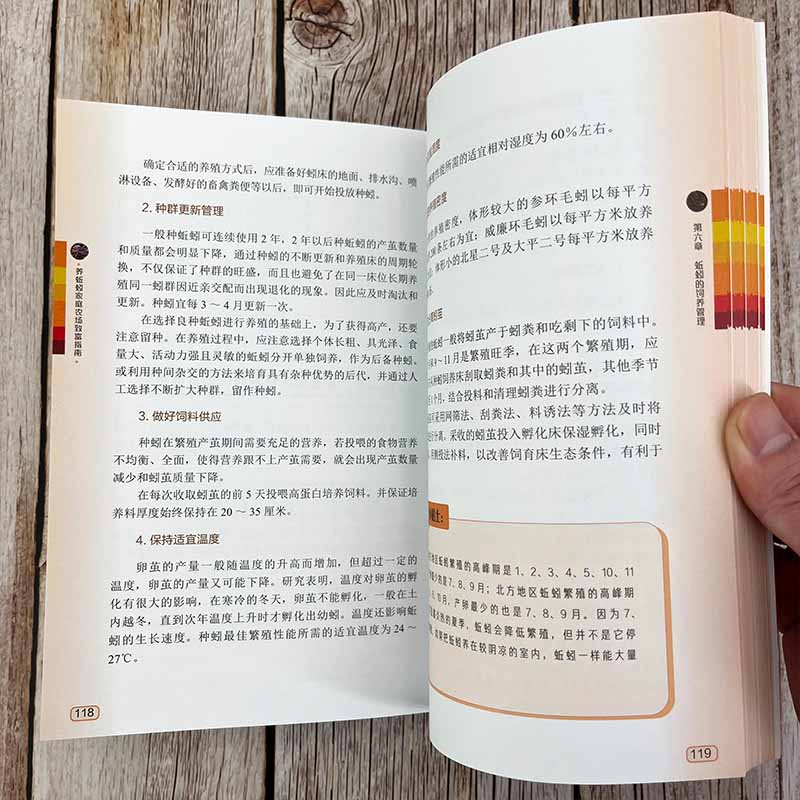 确定合适的养殖方式后，应准备好蚓床的地面、排水沟、喷
淋设备、发酵好的畜禽粪便等以后，即可开始投放种蚓。
2. 种群更新管理
一般种蚯蚓可连续使用 2 年，2 年以后种蚯蚓的产茧数量
和质量都会明显下降，通过种的不断更新和养殖床的周期轮
换，不仅保证了种群的旺盛，而且也避免了在同一床位长期养
殖同一蚓群因近亲交配而出现退化的现象。因此应及时淘汰和
更新。种蚓宜每 3 ～ 4 月更新一次。
在选择良种蚯蚓进行养殖的基础上，为了获得高产，还要
注意留种。在养殖过程中，应注意选择个体长粗、具光泽、食
量大、活动力强且灵敏的蚯蚓分开单独饲养，作为后备种蚓。
或利用种间杂交的方法来培育具有杂种优势的后代，并通过人
工选择不断扩大种群，留作种蚓。
3. 做好饲料供应
种蚓在繁殖产茧期间需要充足的营养，若投喂的食物营养
不均衡、全面，使得营养跟不上产茧需要，就会出现产茧数量
减少和蚓茧质量下降。
在每次收取蚓茧的前 5 天投喂高蛋白培养饲料。并保证培
养料厚度始终保持在 20 ～ 35 厘米。
4. 保持适宜温度
卵茧的产量一般随温度的升高而增加，但超过一定的
温度，卵茧的产量又可能下降。研究表明，温度对卵茧的孵
化有很大的影响，在寒冷的冬天，卵茧不能孵化，一般在土
内越冬，直到次年温度上升时才孵化出幼蚓。温度还影响蚯
蚓的生长速度。种蚓最佳繁殖性能所需的适宜温度为 24 ～
27℃。
118
养蚯蚓家庭农场致富指南
湿度
性能所需的适宜相对湿度为 60%左右。
密度
养殖密度，体形较大的参环毛蚓以每平方
条左右为宜；威廉环毛蚓以每平方米放养
体形小的北星二号及大平二号每平方米放养
蚯蚓一般将蚓茧产于蚓粪和吃剩下的饲料中。
～11月是繁殖旺季，在这两个繁殖期，应
种蚓饲养床刮取蚓粪和其中的蚓茧，其他季节
1 个月，结合投料和清理蚓粪进行分离。
采用网筛法、刮粪法、料诱法等方法及时将
行分离，采收的蚓茧投入孵化床保湿孵化，同时
侧投法补料，以改善饲育床生态条件，有利于
贴士：
地区蚯蚓繁殖的高峰期是 1、2、3、4、5、10、11
最少的是 7、8、9 月；北方地区蚯蚓繁殖的高峰期
10 月，产卵最少的也是 7、8、9 月。因为 7、
炎热的夏季，蚯蚓会降低繁殖，但并不是它停
把蚯蚓养在较阴凉的室内，蚯蚓一样能大量
第六章 蚯蚓的饲养管理
119